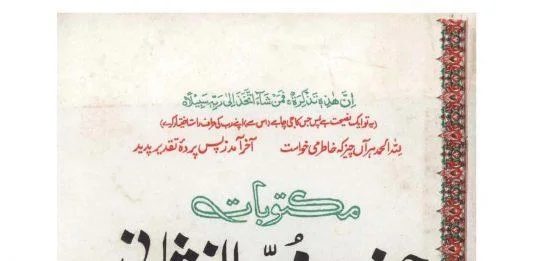 اِنَّ هٰذِهٖ تَذْكِرَةٌ ۚ فَمَنْ شَآءَ اتَّخَذَ اِلٰى رَبِّهٖ سَبِيْلًا
(یہ تو ایک نصیحت ہے پس جس کا جی چاہے (اس سے) اپنے رب کی طرف راستہ اختیار کرے)
للہ الحمد ہر آں چیز کہ خاطر می خواست آخر آمد ز پس پردۂ تقدیر پدید
مکتوبات